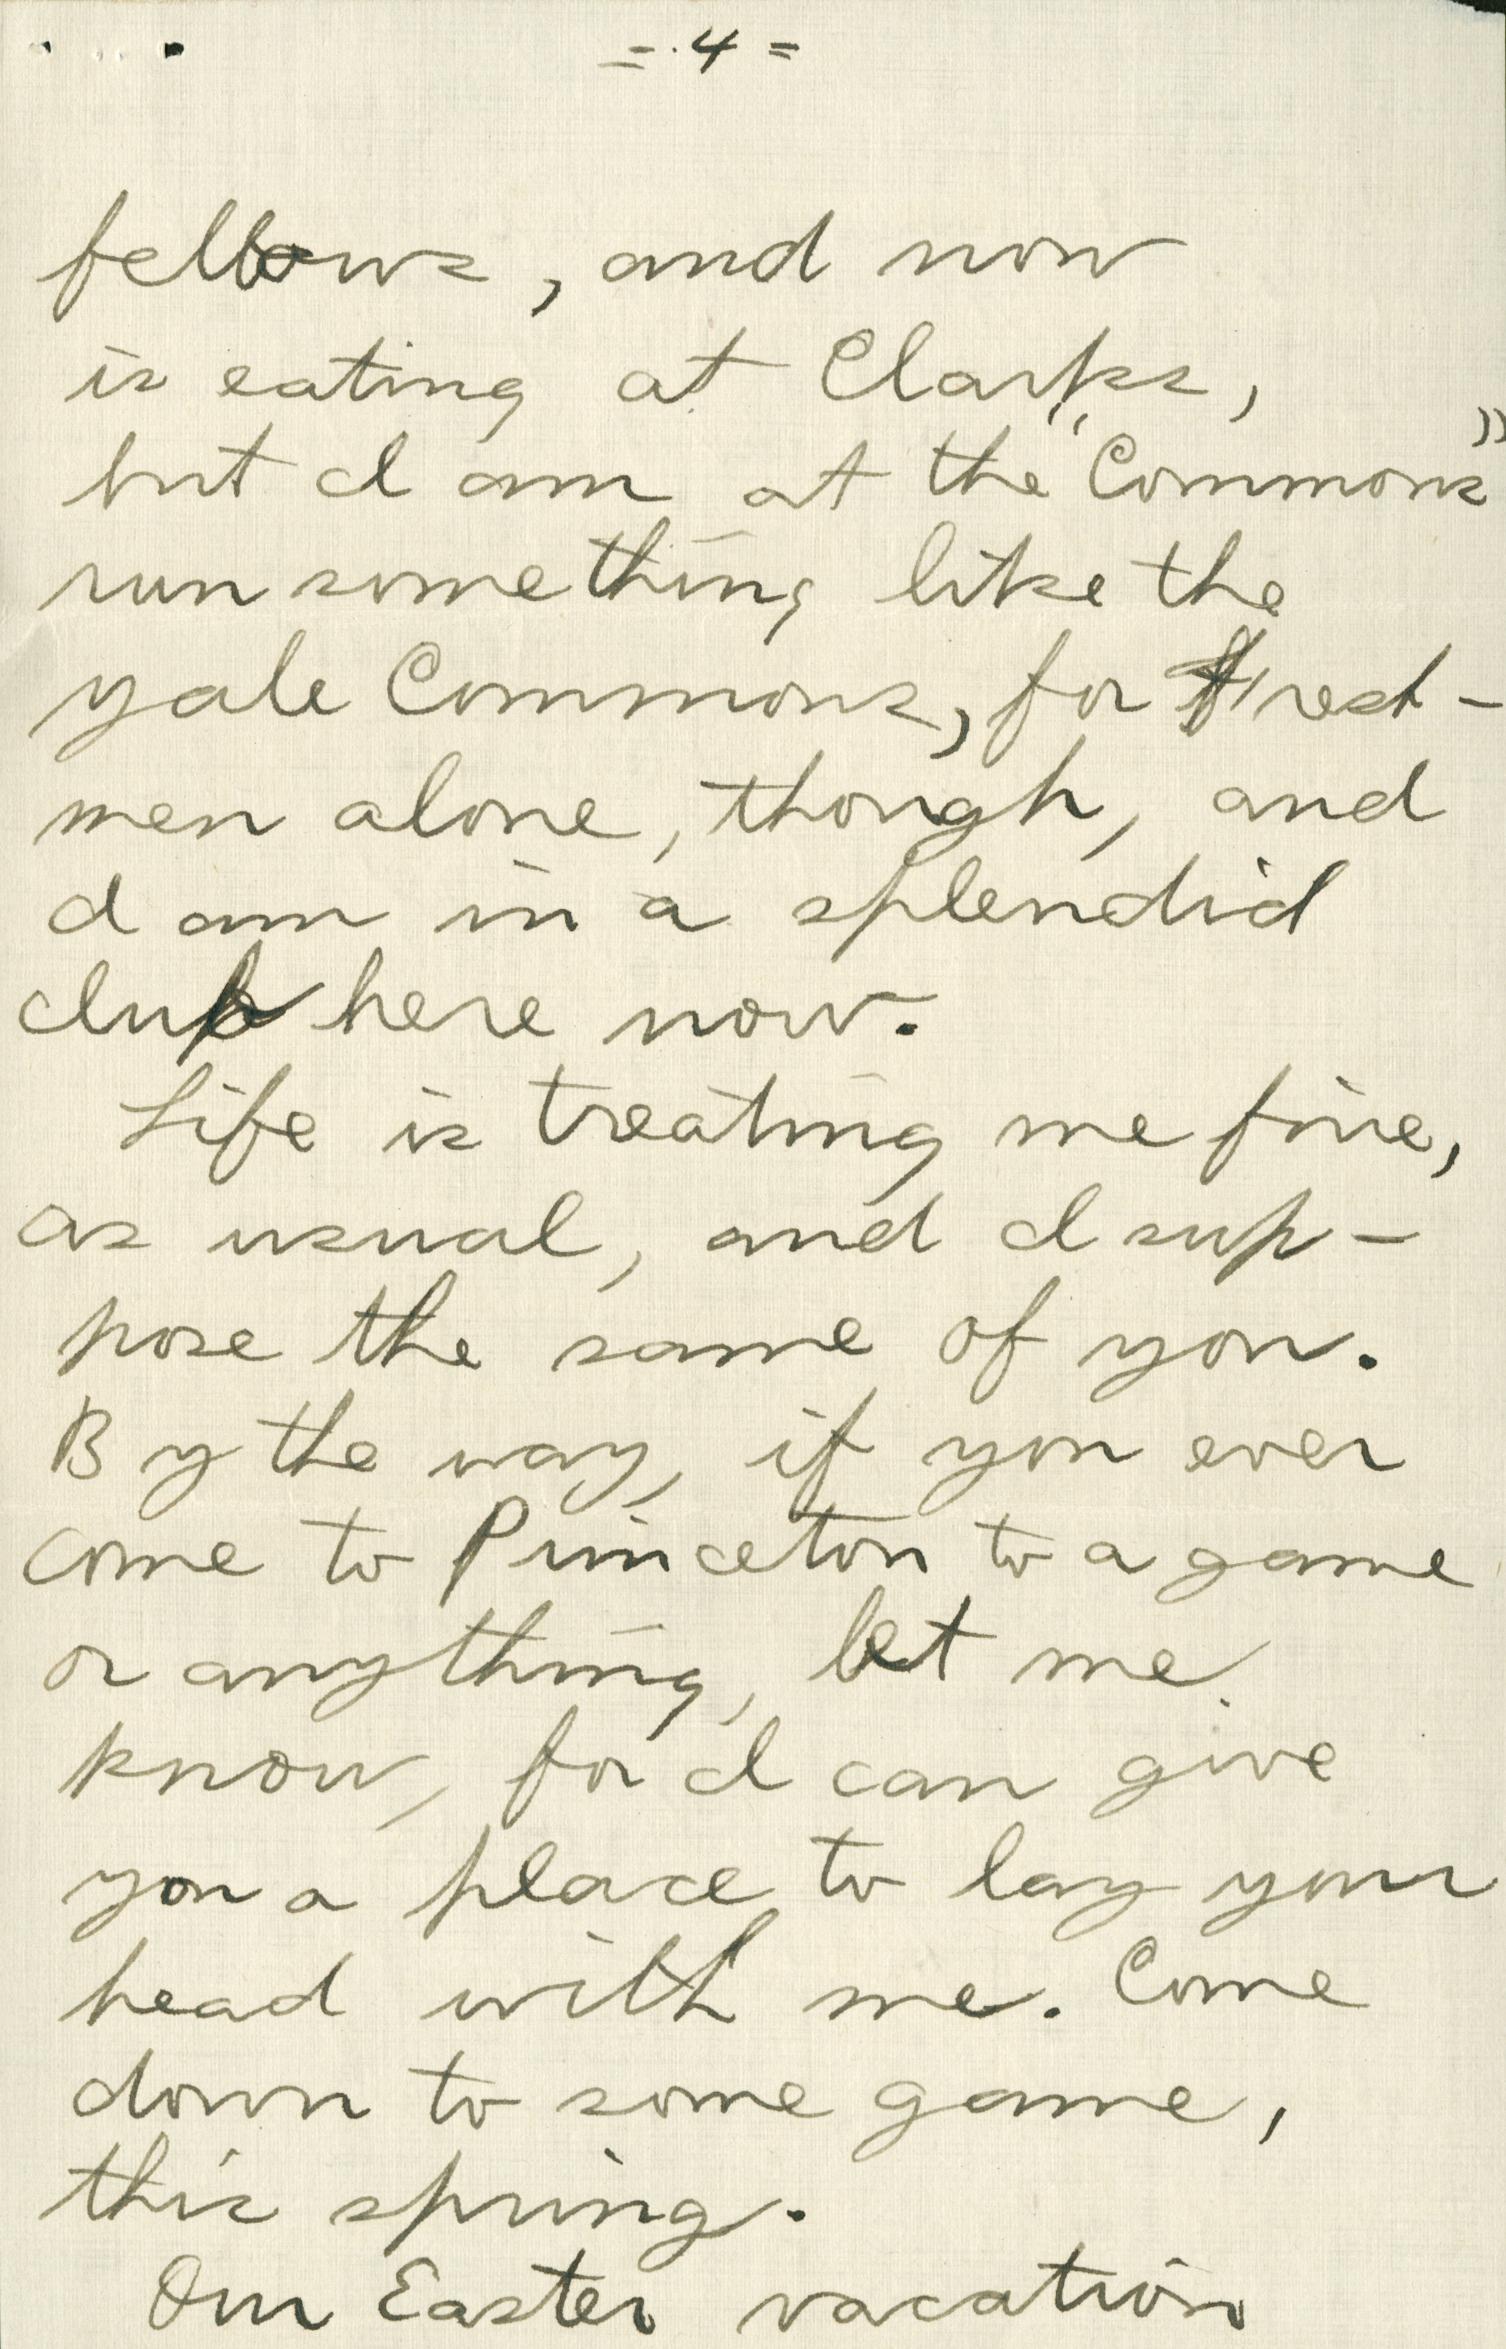 = 4 =
fellows, and now
is eating at Clarks,
but I am at the "Commons"
run something like the
Yale Commons, for Fresh-
men alone, though, and
I am in a splendid
club here now.
Life is treating me fine,
as usual, and I sup-
pose the same of you.
By the way, if you ever
come to Princeton to a game
or anything, let me
know, for I can give
you a place to lay your
head with me. Come
down to some game,
this spring.
Our Easter vacation